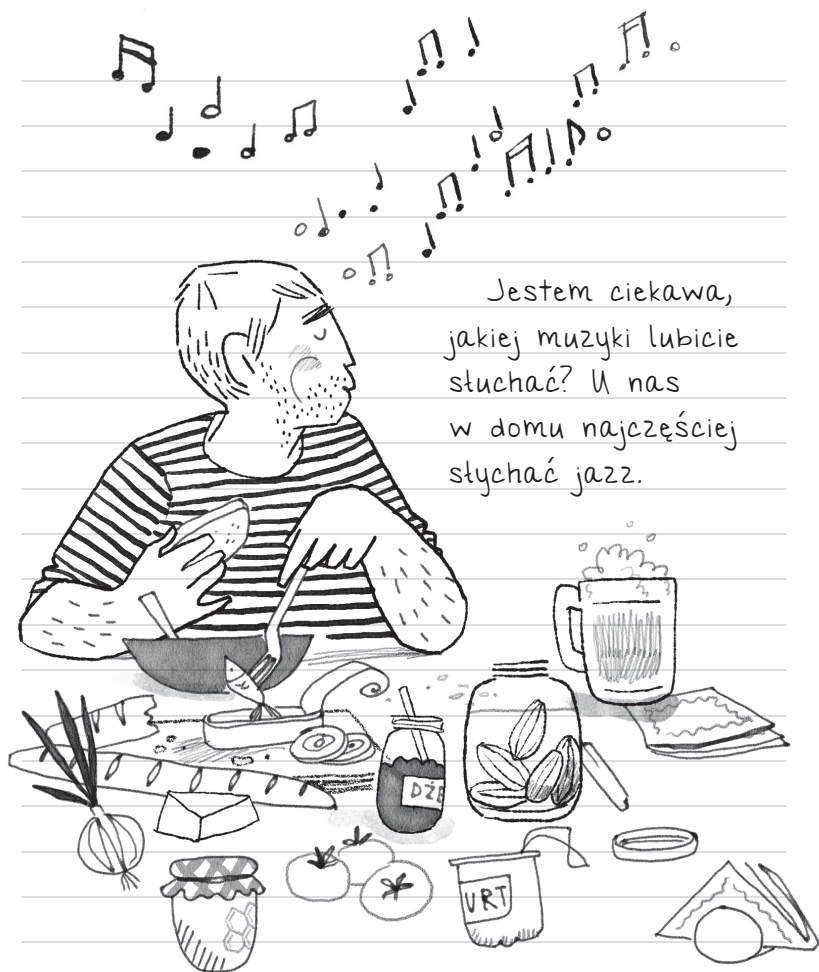 Jestem ciekawa,
jakiej muzyki lubicie
słuchać? U nas
w domu najczęściej
słychać jazz.
DŻE
VRT